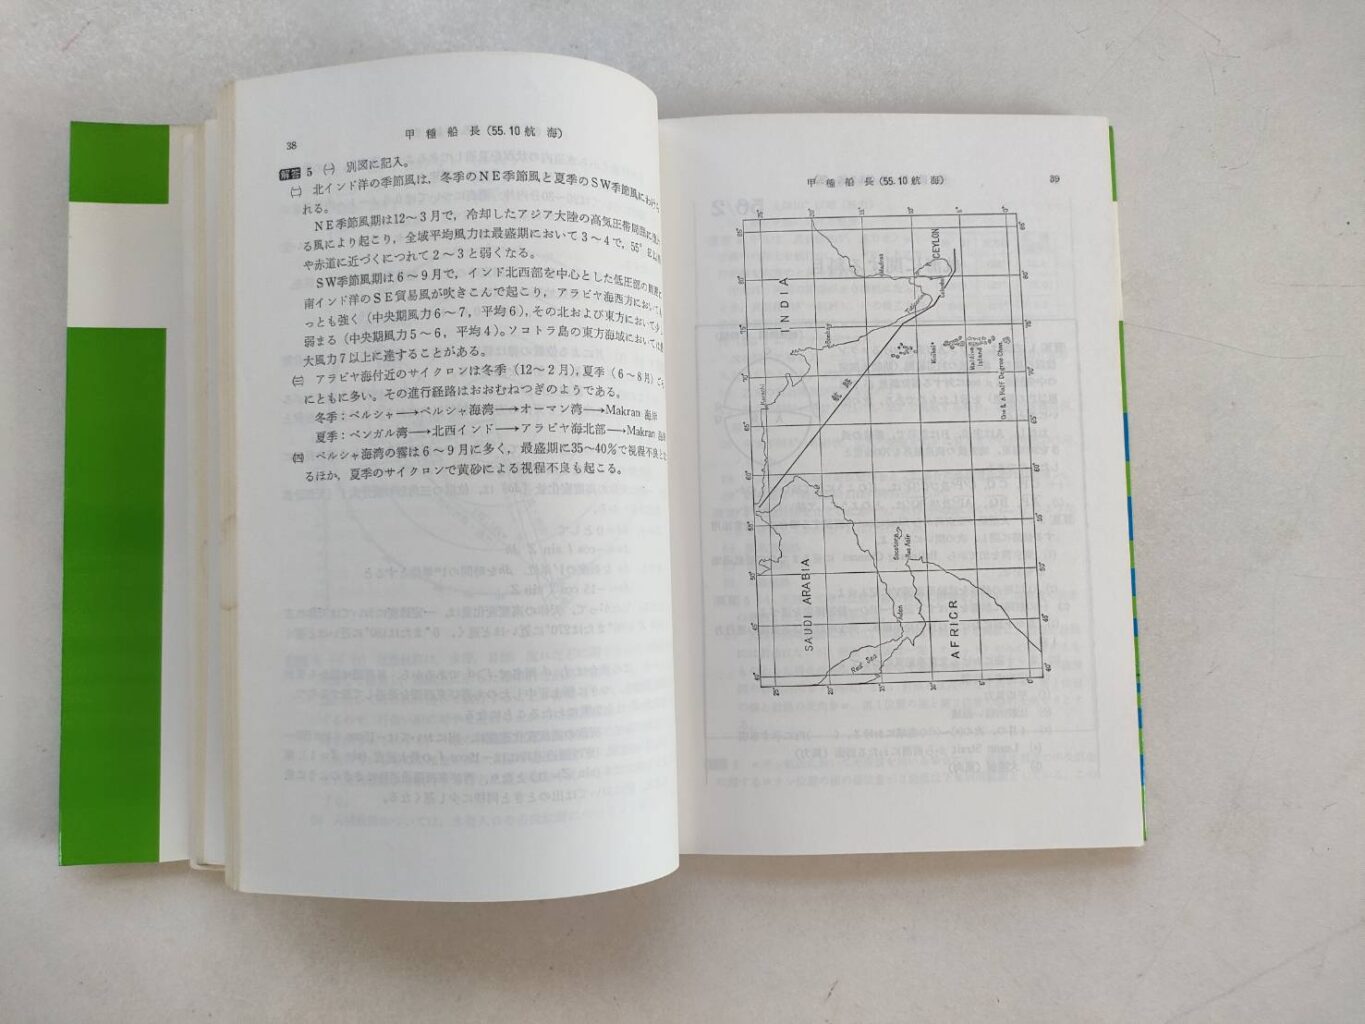 38
甲種船長(55.10航海)
解答 5 ㈠ 別図に記入。
㈡ 北インド洋の季節風は，冬季のNE季節風と夏季のSW季節風にわけら
れる。
NE季節風期は12〜3月で，冷却したアジア大陸の高気圧帯周囲に
る風により起こり，全域平均風力は最盛期において3〜4で，55°E
や赤道に近づくにつれて2〜3と弱くなる。
SW季節風期は6〜9月で，インド北西部を中心とした低圧部の
南インド洋のSE貿易風が吹きこんで起こり，アラビヤ海西方において
っとも強く（中央期風力6〜7，平均6），その北および東方において
弱まる（中央期風力5〜6，平均4）。ソコトラ島の東方海域においては
大風力7以上に達することがある。
㈢ アラビヤ海付近のサイクロンは冬季（12〜2月），夏季（6〜8月）
にともに多い。その進行経路はおおむねつぎのようである。
冬季：ペルシャ→ペルシャ海湾→オーマン湾→Makran 海岸
夏季：ベンガル湾→北西インド→アラビヤ海北部→Makran 海岸
㈣ ペルシャ海湾の霧は6〜9月に多く，最盛期に35〜40%で視程不良と
るほか，夏季のサイクロンで黄砂による視程不良も起こる。
甲種船長(55.10航海)
39
INDIA
CEYLON
Madras
Bombay
Karachi
航路
Minikoi
Maldive Island
One & A Half Degree Chan.
SAUDI ARABIA
Socotra
Ras Asir
Aden
Red Sea
AFRICR